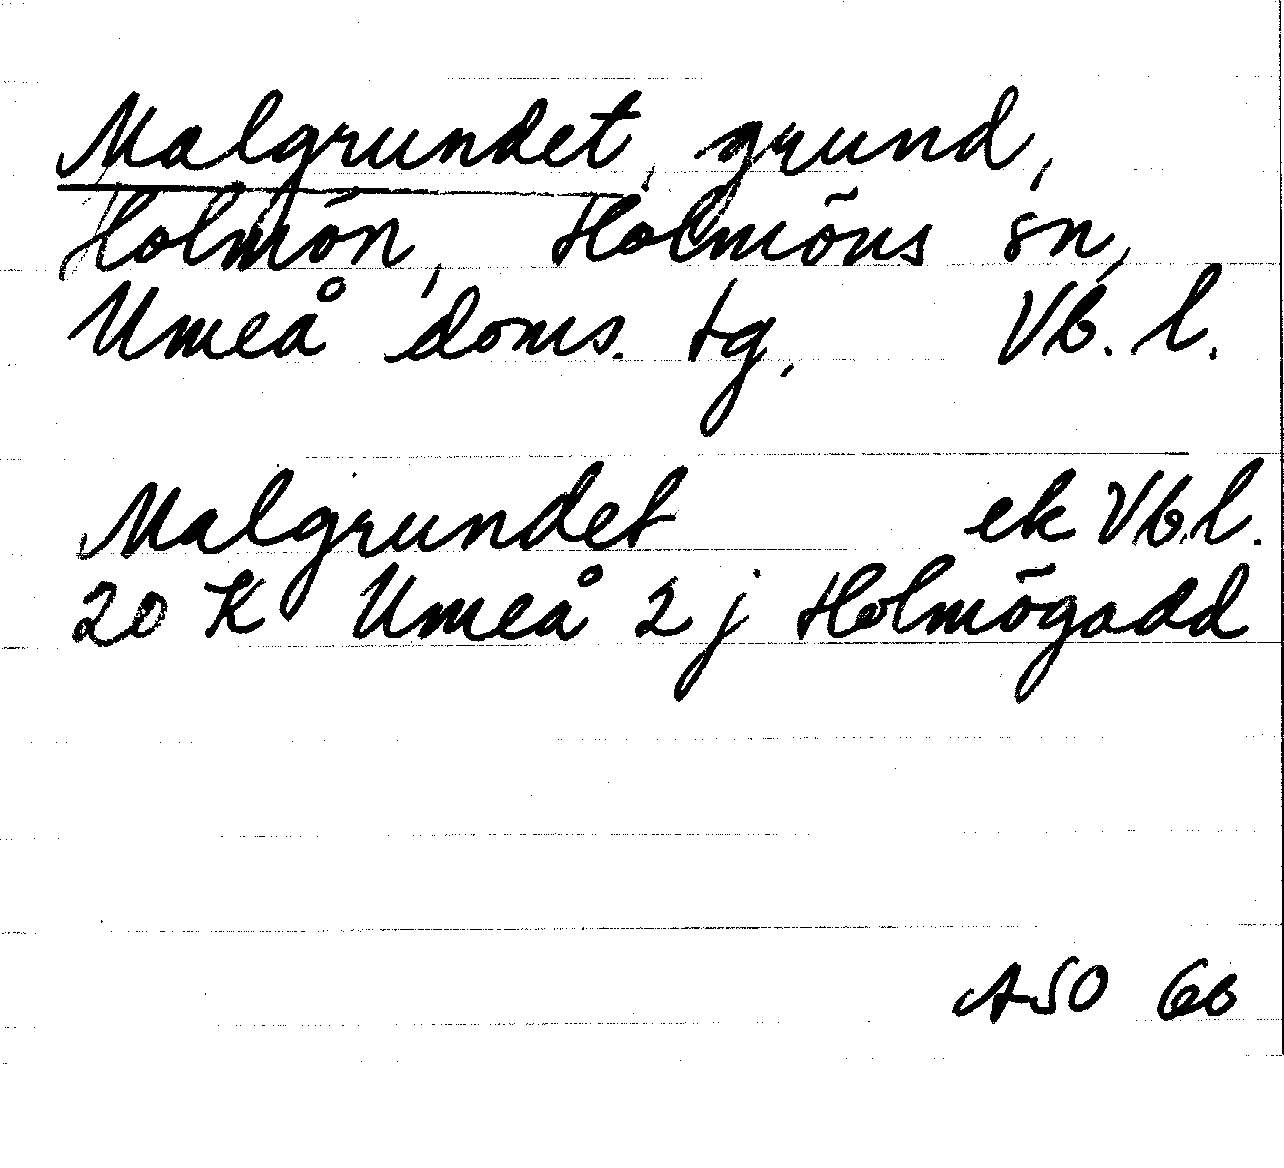 Malgrundet, grund,
Holmön, Holmöns sn,
Umeå doms. tg, Vb. l.
Malgrundet ek Vb.l.
20 K Umeå 2 j Holmögadd
ASO 66